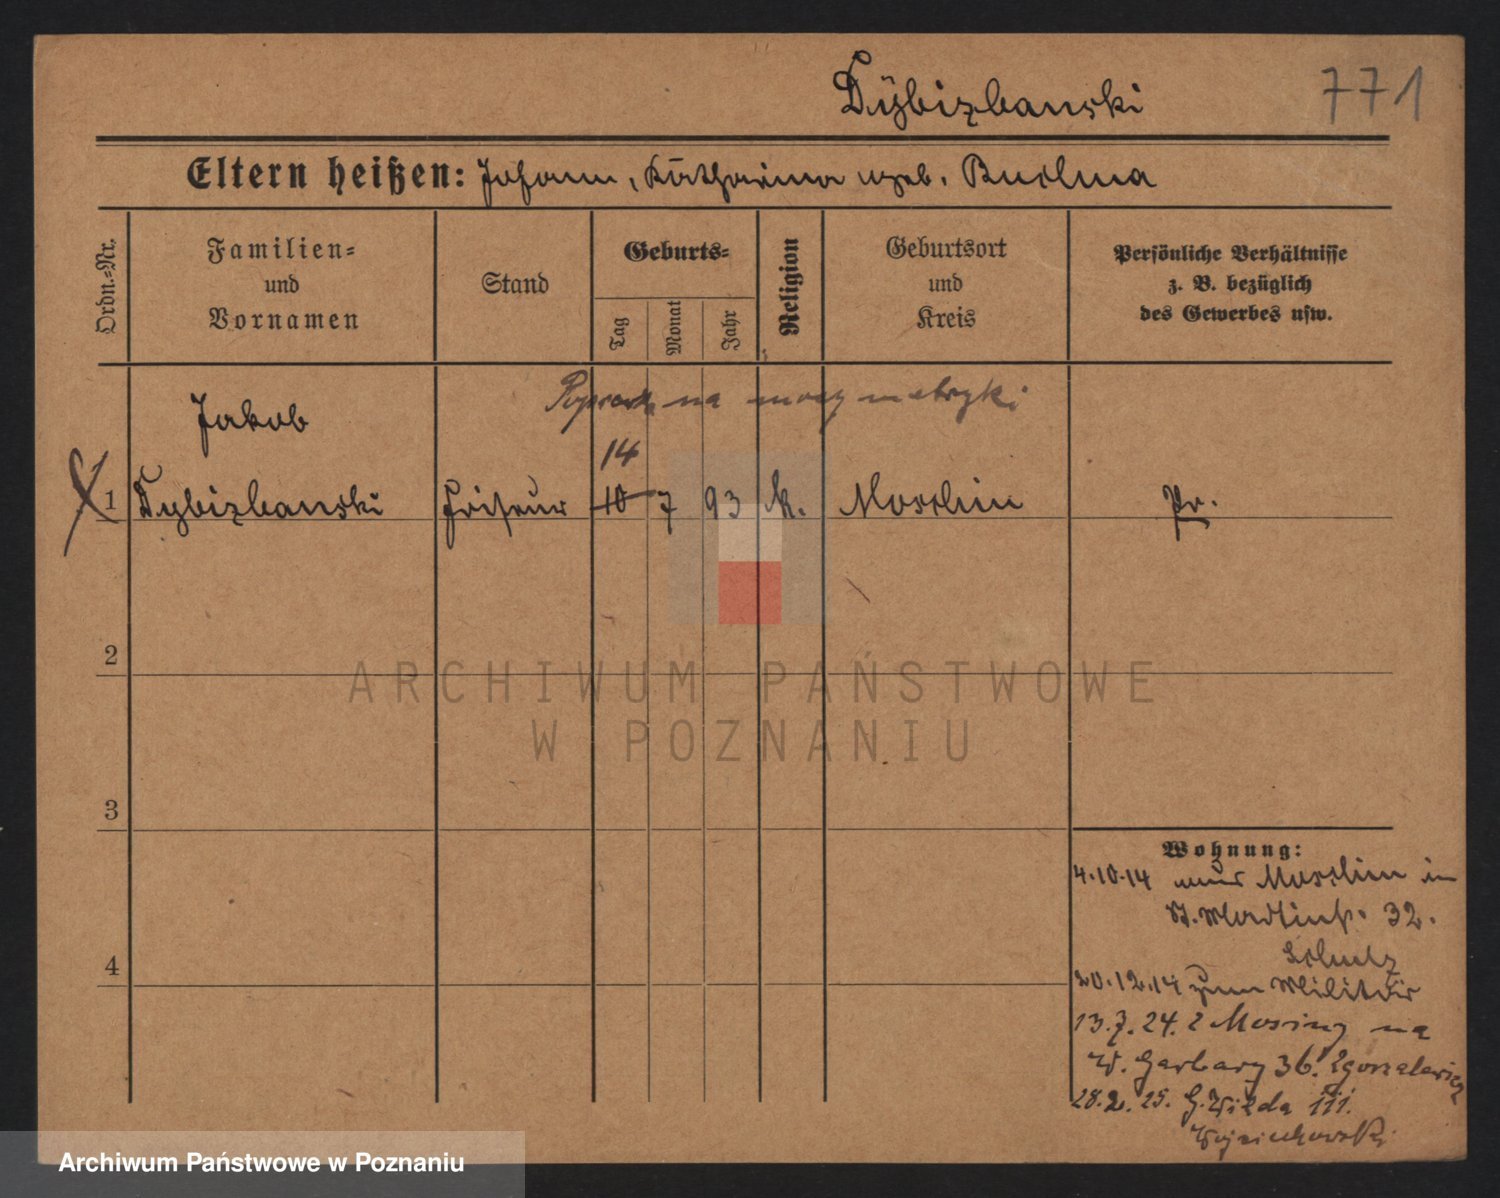 Dÿbizbanski
771
Eltern heißen: Johann, Katharina geb.
Ordn.=Nr.
Familien=
und
Vornamen
Stand
Geburts=
Tag
Monat
Jahr
Religion
Geburtsort
und
Kreis
Persönliche Verhältnisse
z. B. bezüglich
des Gewerbes usw.
Popraw. na mocy metryki
Jakob
14
1 Dybizbanski Friseur 10 7 93 k. Moschin Pr.
2
3
4
Wohnung:
4.10.14 aus Moschin in
St. Martinst. 32.
Schulz
20.12.14 zum Militär
13.7.24. z Mosiny na
W. Garbary 36. Zgorzalewicz
28.2.25. G. Wilda 111.
Wojciechowski
ARCHIWUM PAŃSTWOWE
W POZNANIU
Archiwum Państwowe w Poznaniu